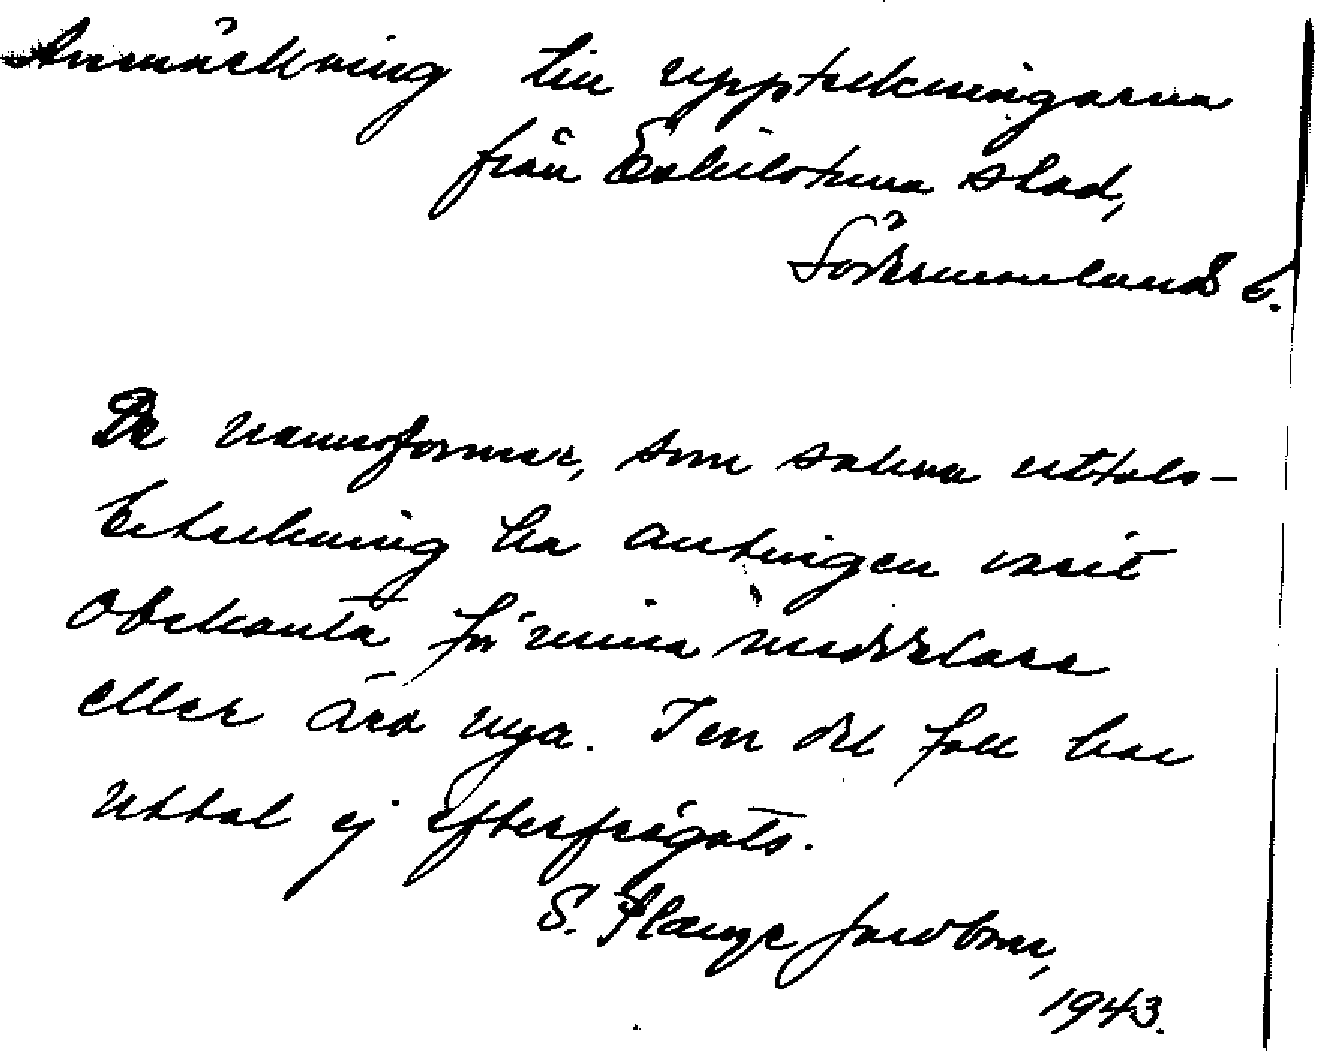 Anmärkning till uppteckningarna
från Eskilstuna stad,
Södermanlands l.
De namnformer, som sakna uttals-
beteckning ha antingen varit
obekanta för mina meddelare
eller äro nya. I en del fall har
uttal ej efterfrågats.
S. Plænge Jacobson,
1943.